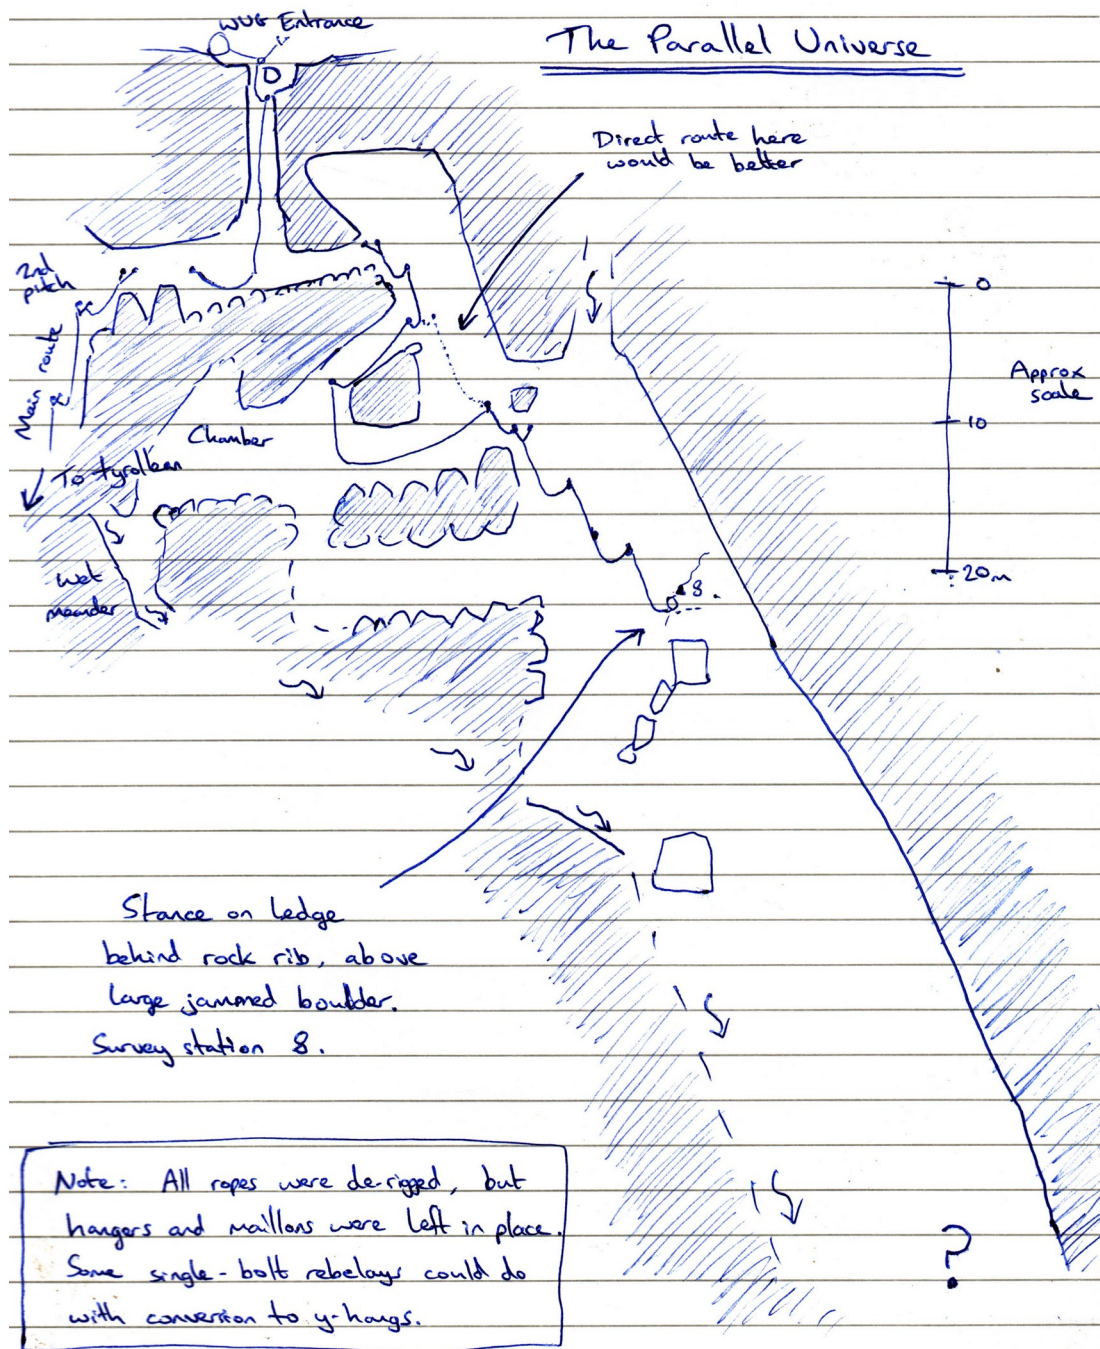 WUG Entrance
The Parallel Universe
Direct route here
would be better
2nd
pitch
Main route
0
Approx
scale
10
20m
Chamber
To tyrolean
wet
meander
8.
Stance on ledge
behind rock rib, above
large jammed boulder.
Survey station 8.
Note: All ropes were de-rigged, but
hangers and maillons were left in place.
Some single-bolt rebelays could do
with conversion to y-hangs.
?